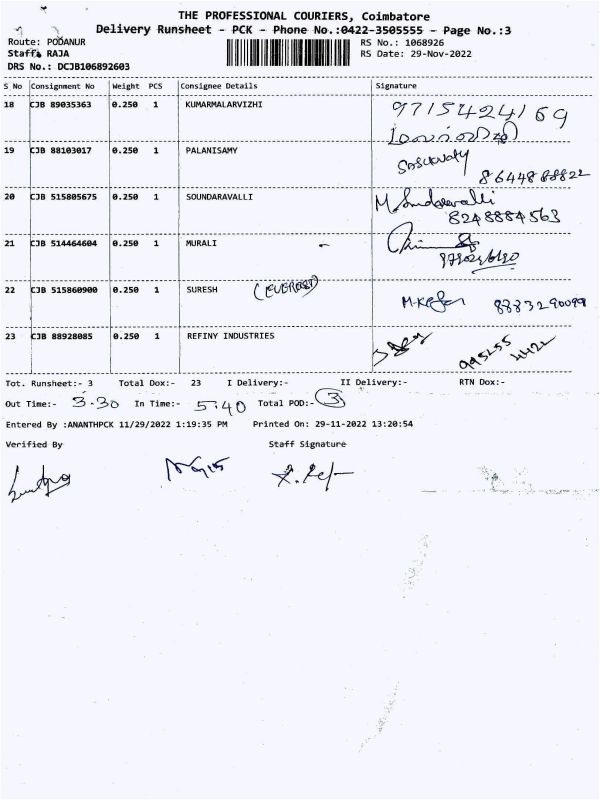 THE PROFESSIONAL COURIERS, Coimbatore
Delivery Runsheet - PCK - Phone No.:0422-3505555 - Page No.:3
Route: PODANUR
RS No.: 1068926
Staff: RAJA
RS Date: 29-Nov-2022
DRS No.: DCJB106892603
S No Consignment No Weight PCS Consignee Details Signature
18 CJB 89035363 0.250 1 KUMARMALARVIZHI 9715424169
19 CJB 88103017 0.250 1 PALANISAMY
8644888822
20 CJB 515805675 0.250 1 SOUNDARAVALLI M. Sundaravalli
8248884563
21 CJB 514464604 0.250 1 MURALI
22 CJB 515860900 0.250 1 SURESH 8883290099
23 CJB 88928085 0.250 1 REFINY INDUSTRIES
Tot. Runsheet:- 3 Total Dox:- 23 I Delivery:- II Delivery:- RTN Dox:-
Out Time:- 3.30 In Time:- 5.40 Total POD:- 3
Entered By :ANANTHPCK 11/29/2022 1:19:35 PM Printed On: 29-11-2022 13:20:54
Verified By Staff Signature